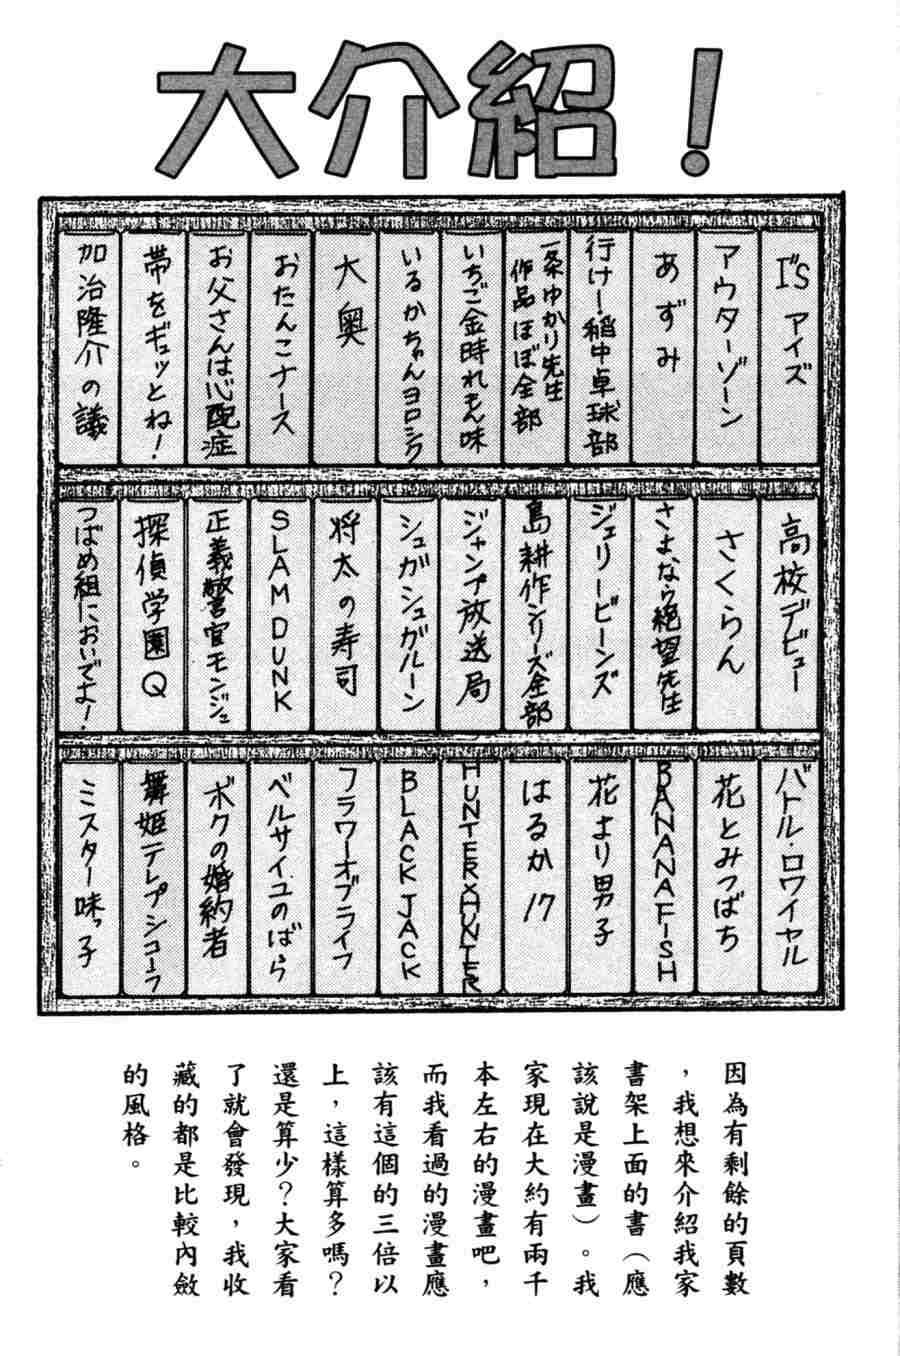 大介紹！
I'S アイズ
アウターゾーン
あずみ
行け！稲中卓球部
一条ゆかり先生
作品ほぼ全部
いちご金時れもん味
いるかちゃんヨロシク
大奥
おたんこナース
お父さんは心配症
帯をギュッとね！
加治隆介の議
高校デビュー
さくらん
さよなら絶望先生
ジェリービーンズ
島耕作シリーズ全部
ジャンプ放送局
シュガシュガルーン
将太の寿司
SLAM DUNK
正義警官モンジュ
探偵学園Q
つばめ組においでよ！
バトル・ロワイヤル
花とみつばち
BANANAFISH
花より男子
はるか17
HUNTER×HUNTER
BLACK JACK
フラワーオブライフ
ベルサイユのばら
ボクの婚約者
舞姫テレプシコーラ
ミスター味っ子
因為有剩餘的頁數
，我想來介紹我家
書架上面的書（應
該說是漫畫）。我
家現在大約有兩千
本左右的漫畫吧，
而我看過的漫畫應
該有這個的三倍以
上，這樣算多嗎？
還是算少？大家看
了就會發現，我收
藏的都是比較內斂
的風格。